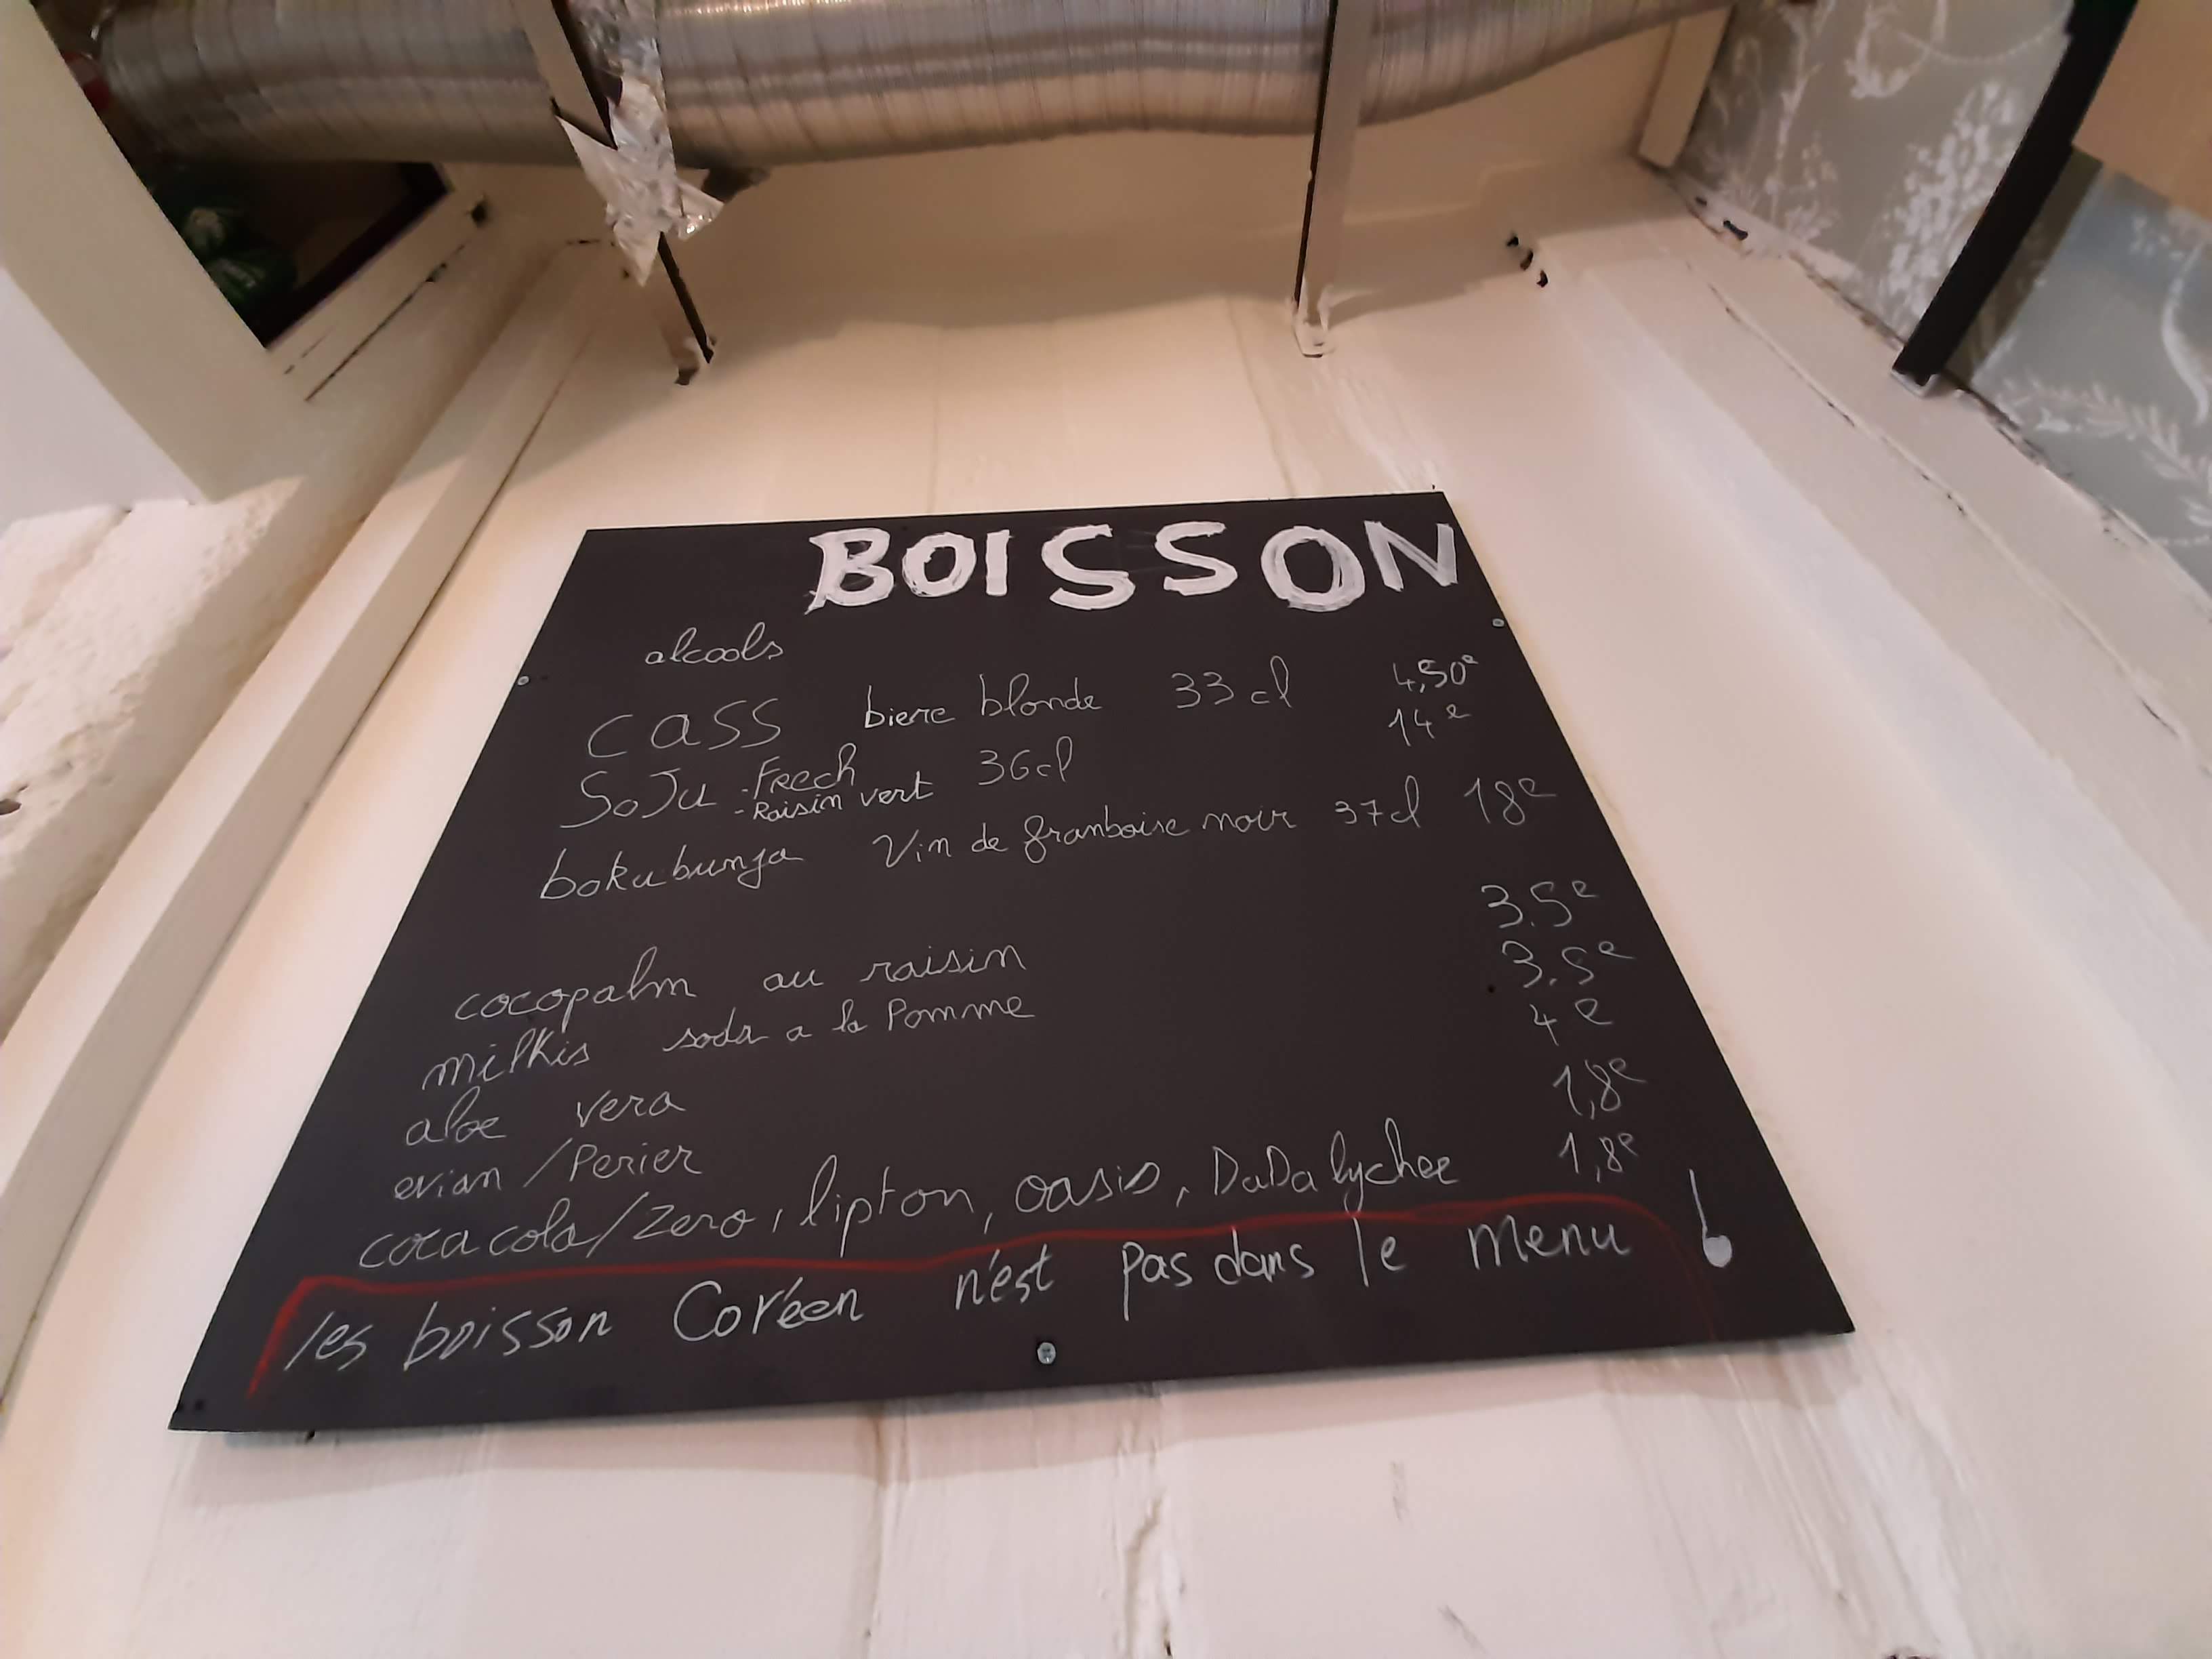 BOISSON
alcools
CASS biere blonde 33cl 4,50e
SoJu - Frech 36cl 14e
- Raisin vert
bokubunja Vin de framboise noir 37cl 18e
cocopalm au raisin 3.5e
milkis soda a la Pomme 3.5e
aloe vera 4e
evian / Perier 1,8e
coca cola/zero, lipton, oasis, DaDa lychee 1,8e
les boisson Coréen n'est pas dans le menu !